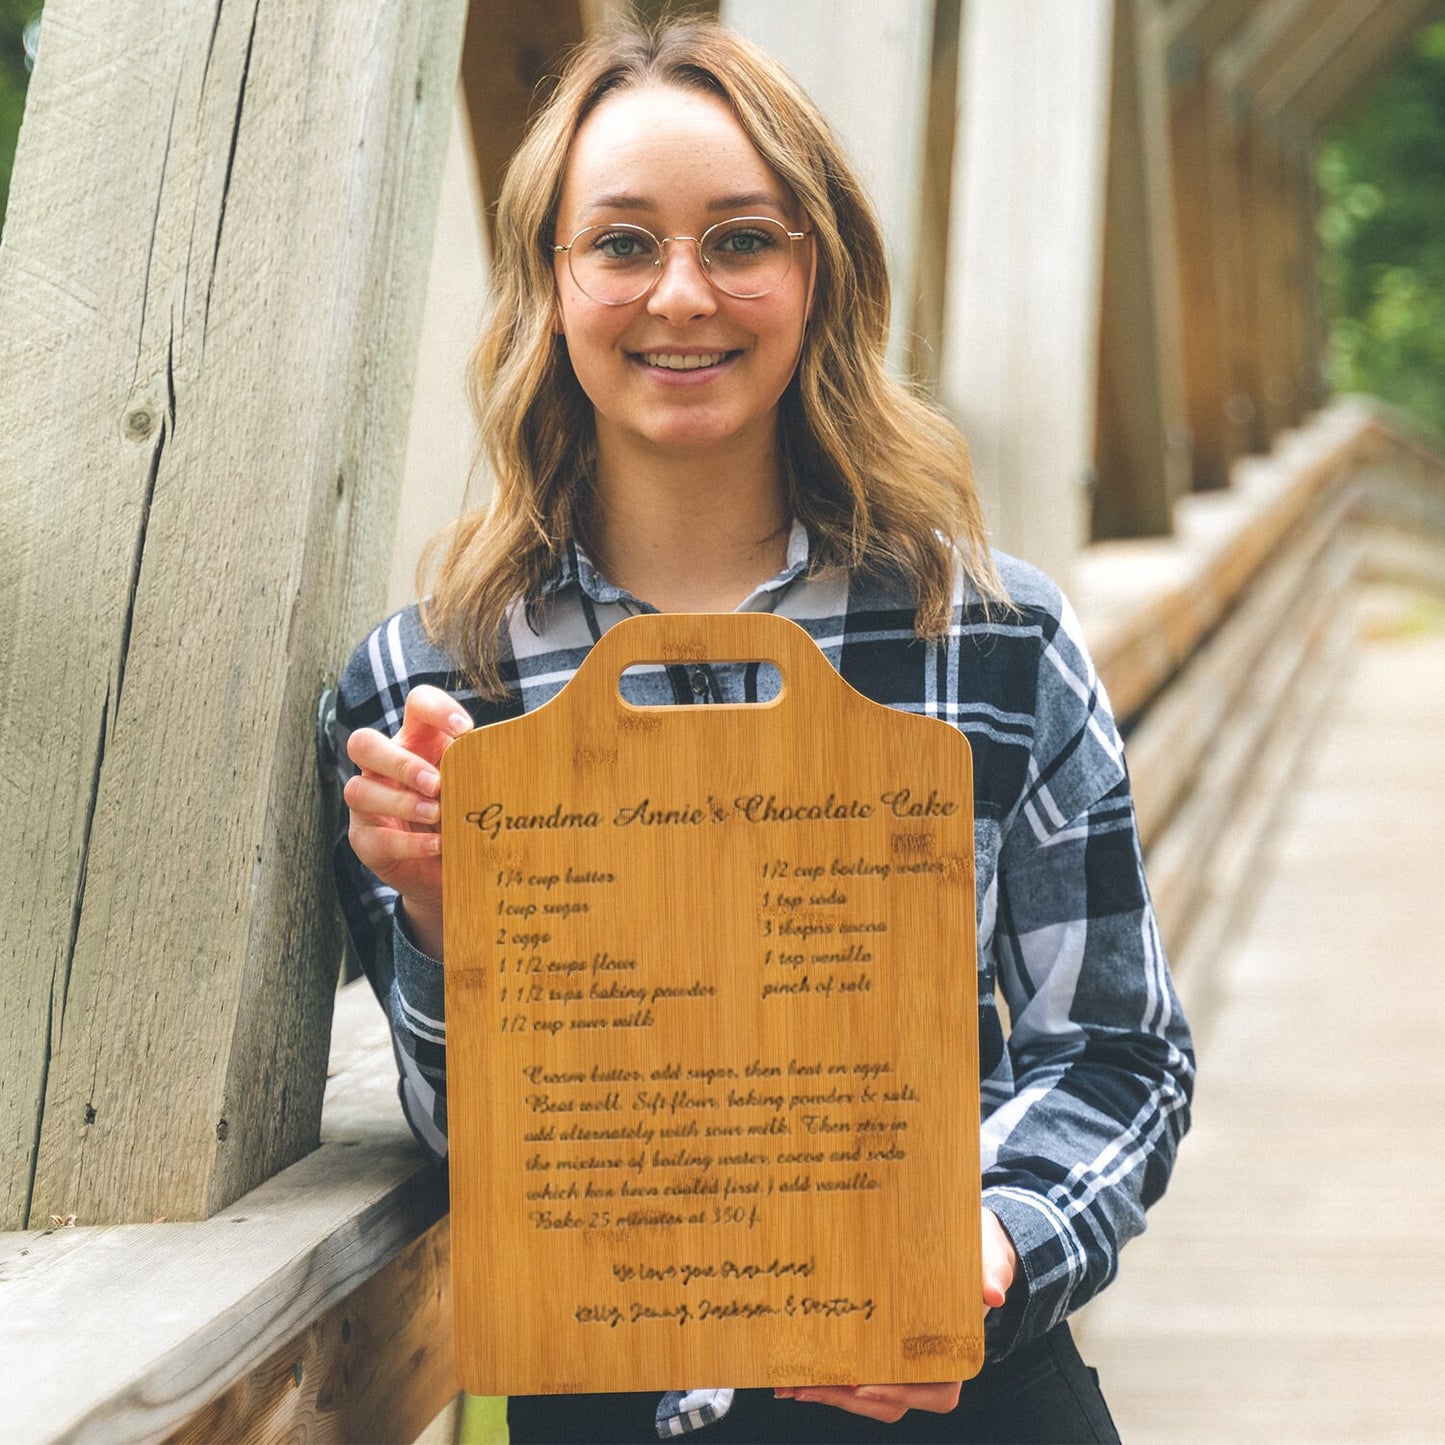 Grandma Annie's Chocolate Cake
1/4 cup butter
1cup sugar
2 eggs
1 1/2 cups flour
1 1/2 tsps baking powder
1/2 cup sour milk
1/2 cup boiling water
1 tsp soda
3 tbspns cocoa
1 tsp vanilla
pinch of salt
Cream butter, add sugar, then beat en eggs.
Beat well. Sift flour, baking powder & salt,
add alternately with sour milk. Then stir in
the mixture of boiling water, cocoa and soda
which has been cooled first.) add vanilla.
Bake 25 minutes at 350 f.
We love you Grandma!
Kelly, Jenny, Jackson & Destiny